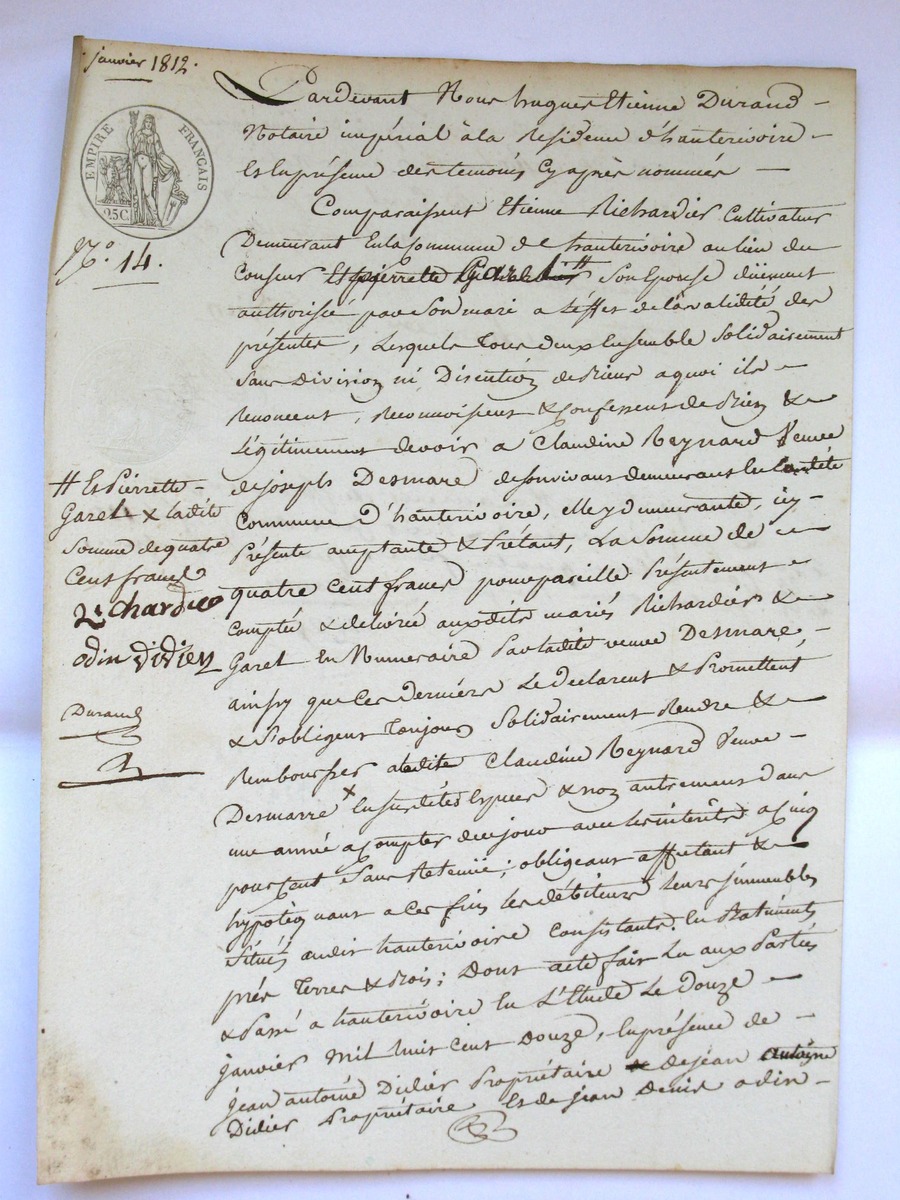 janvier 1812.
EMPIRE FRANÇAIS
25C.
N.º 14.
Pardevant Nous hugues Etienne Durand
Notaire impérial à la Residence d'hauterivoire
Et En présence des temoins Cy après nommés
Comparaissent Etienne Richardier Cultivateur
Demeurant En la Commune de hauterivoire au lieu du
Conseur Et pierrette Son Epouse düement
authorisée par Son mari a Leffet de la validité des
présentes, Lesquels Tous deux Ensemble Solidairement
Sans Division ni Discution de Biens a quoi ils
Renoncent, Reconnoissent & Confessent de Bien &
Légitimement devoir a Claudine Reynard Veuve
de joseph Desmare de Son vivant demeurant En Ladite
Commune D'hauterivoire, elle y demeurante, icy
Présente acceptante & Prétant, La Somme de
quatre Cent francs pour pareille Présentement
Comptée & délivrée auxdits mariés Richardier &
Garel En Numeraire Par ladite veuve Desmare,
ainsy que Ces Derniers Le declarent & Promettent
& S'obligent Toujours Solidairement Rendre &
Rembourser a ladite Claudine Reynard Veuve
Desmarre x En Susdites Especes & non autrement Dans
une année a Compter de ce jour avec les intérêts a Cinq
pour Cent Sans Retenüe; obligeant affectant &
hypotéquant a Ces fins les débiteurs leurs jmmeubles
Situés audit hauterivoire Consistants En Batiments
prés Terres & Bois; Dont acte fait Lu aux Parties
& Passé a hauterivoire En L'Etude Le Douze
janvier Mil huit Cent Douze, En présence de
jean antoine Didier Propriétaire & de jean antoine
Didier Propriétaire Et de jean Denis odin
# Et Pierrette
Garel x ladite
Somme de quatre
Cent francs
Richardier
odin Didier
Durand